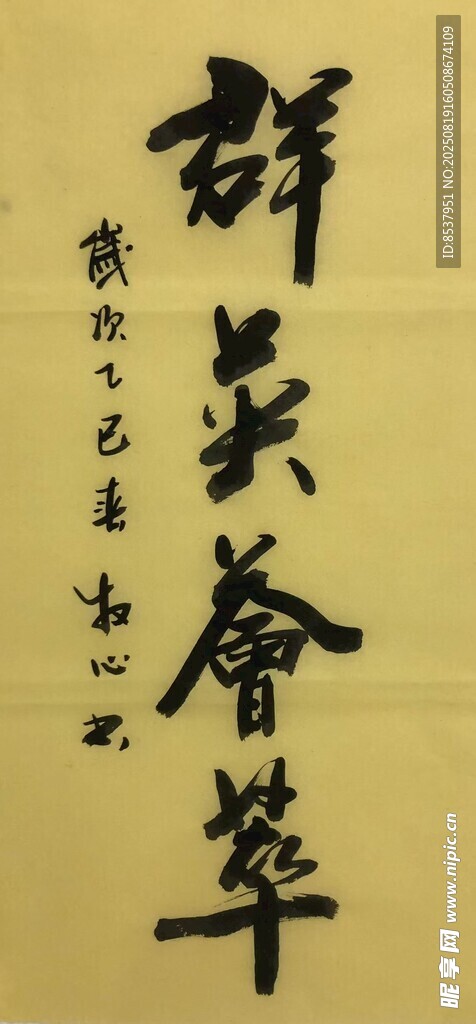 群英薈萃
歲次乙巳春 牧心书
ID:8537951 NO:20250819160508674109
昵享网 www.nipic.cn